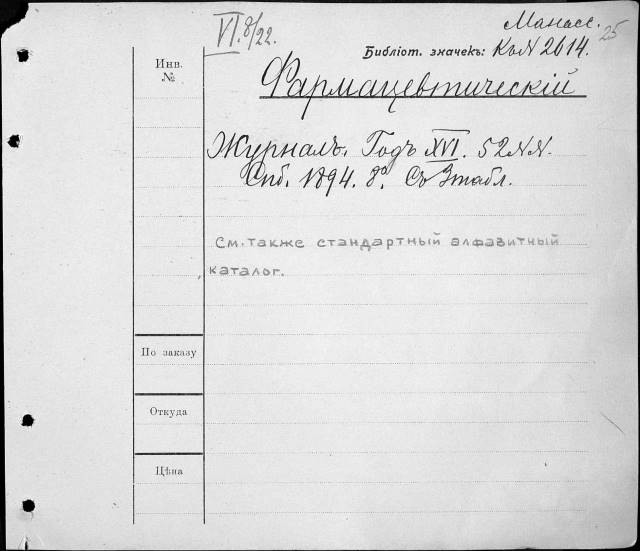 VI. 8/22.
Манасс. 25
Библіот. значекъ: К N 2614.
Инв.
№
Фармацевтическій
Журналъ. Годъ XVI. 52 NN.
Спб. 1894. 8º. Съ 3 табл.
См. также стандартный алфавитный
каталог.
По заказу
Откуда
Цѣна